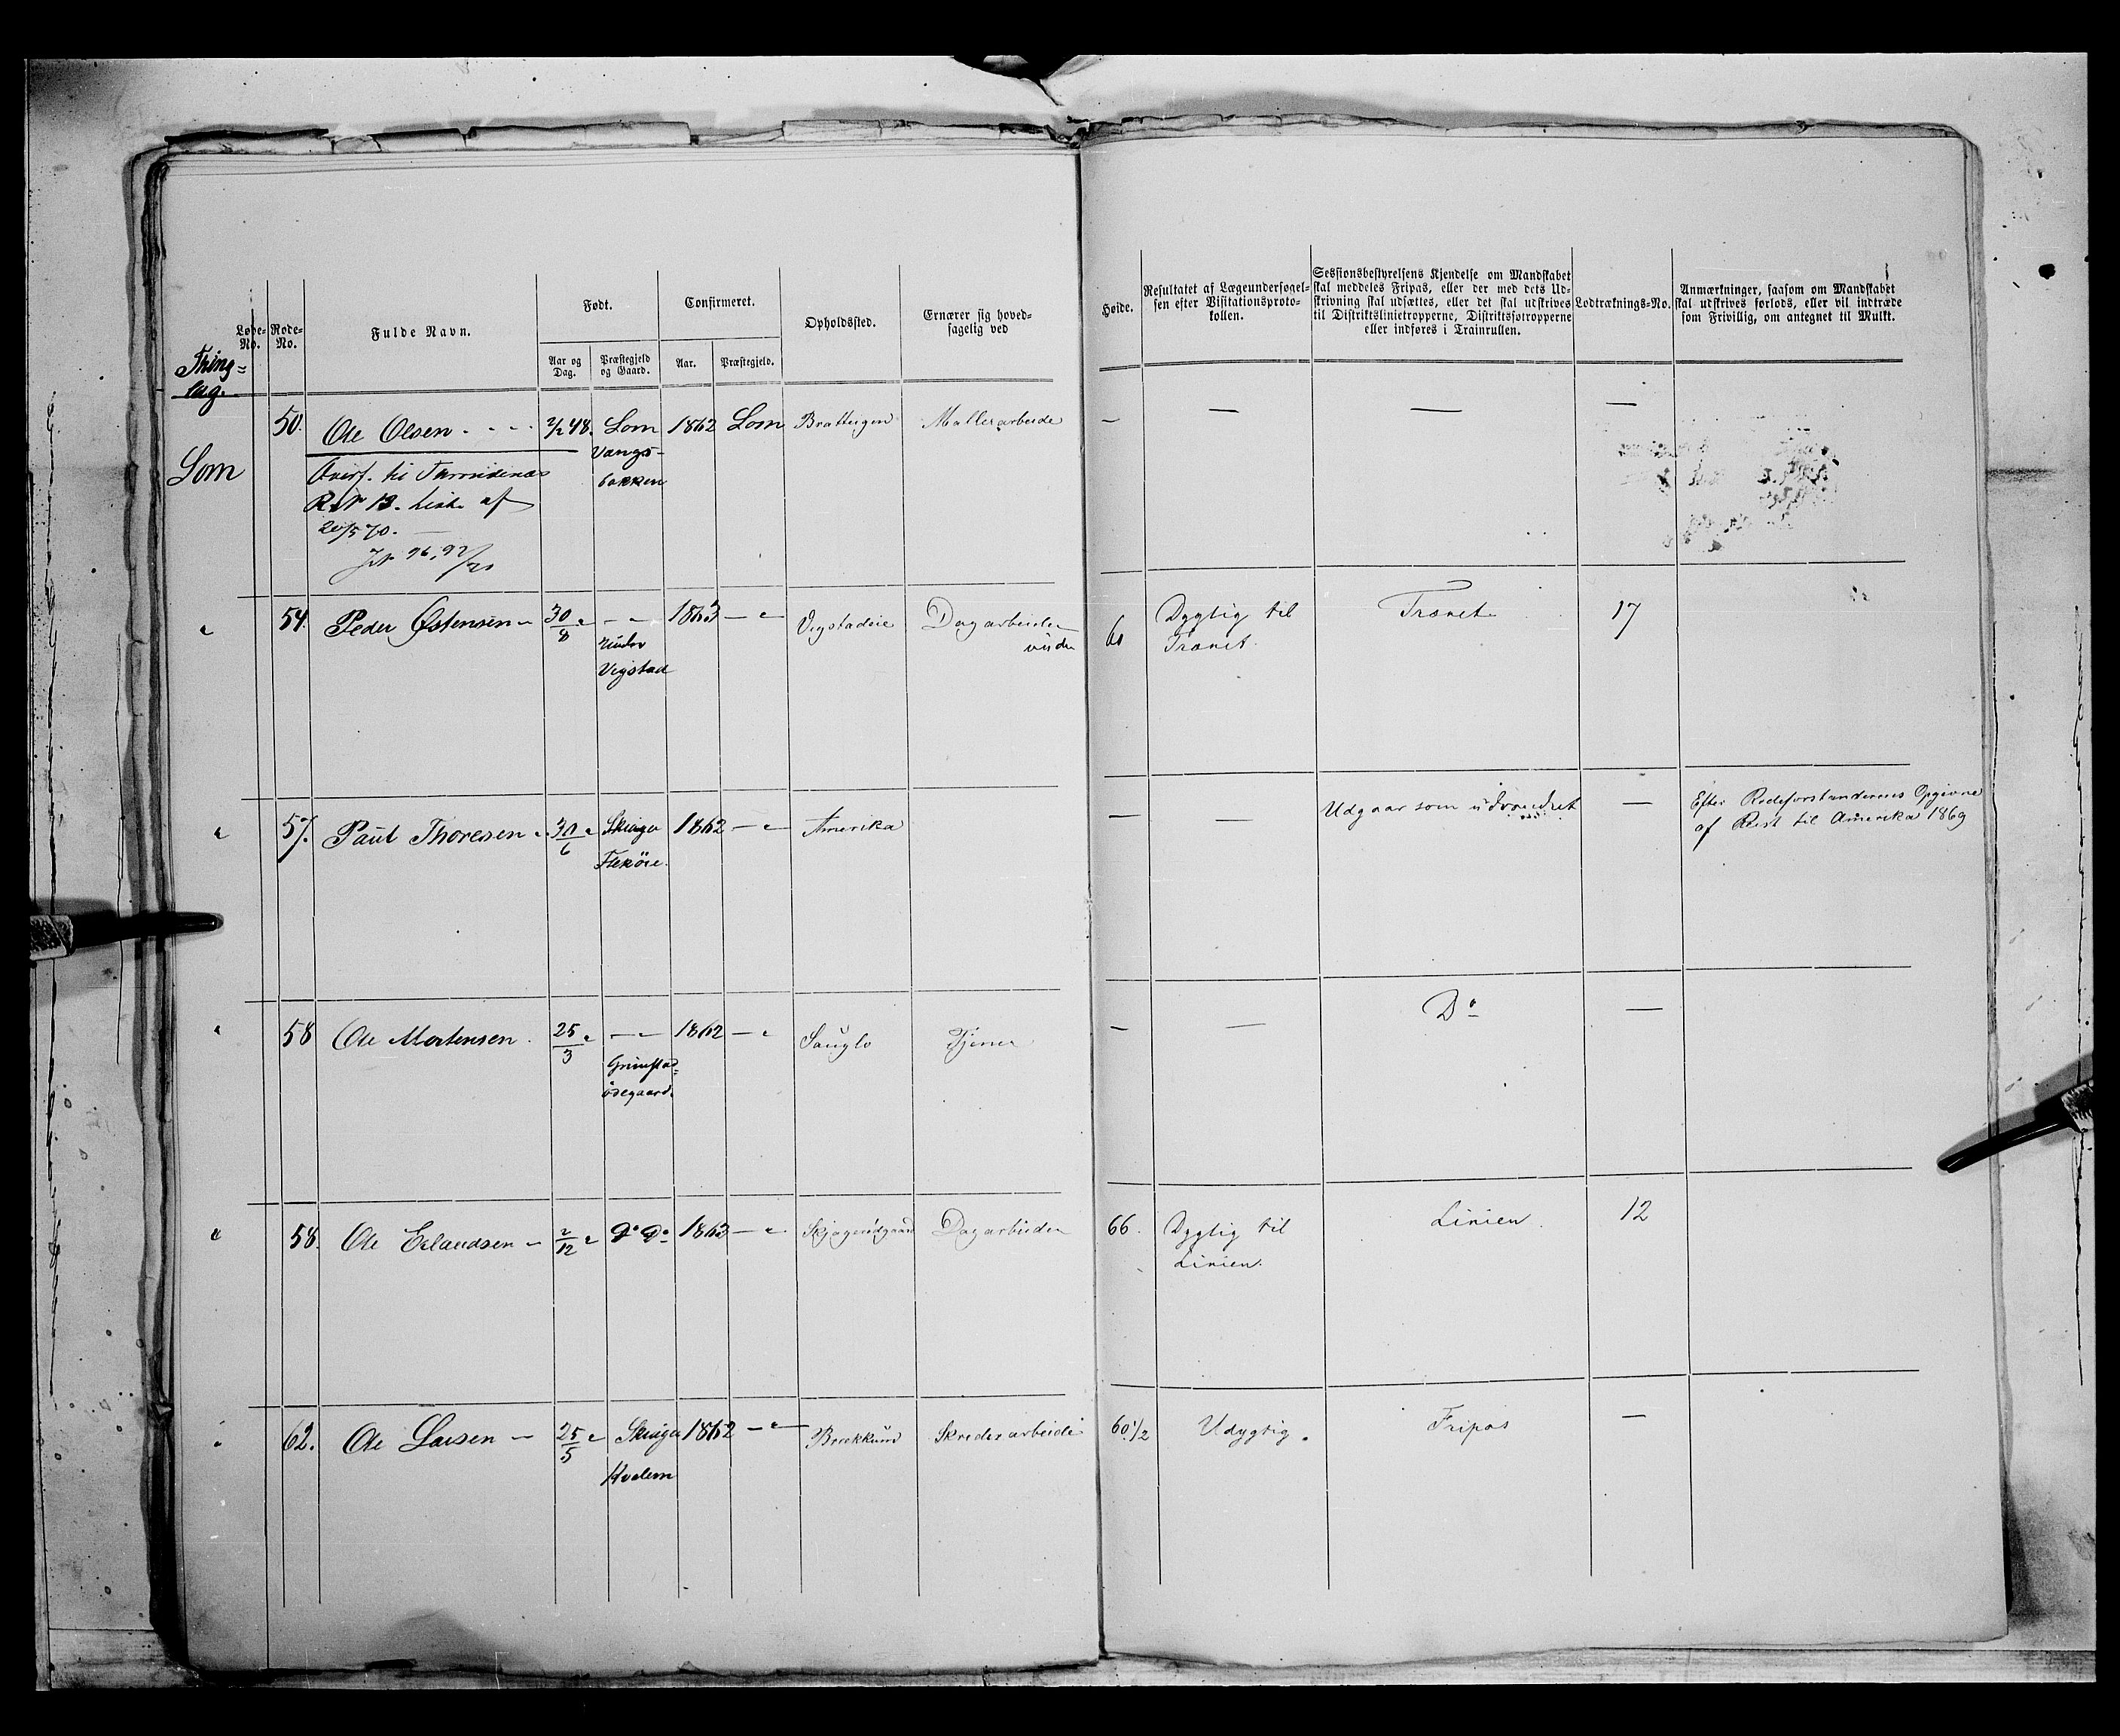 Løbe-No.
Rode-No.
Fulde Navn.
Født.
Aar og Dag.
Præstegjeld og Gaard.
Confirmeret.
Aar.
Præstegjeld.
Opholdssted.
Ernærer sig hovedsagelig ved
Høide.
Resultatet af Lægeundersøgelsen efter Visitationsprotokollen.
Sessionsbestyrelsens Kjendelse om Mandskabet
skal meddeles Fripas, eller der med dets Ud-
skrivning skal udsættes, eller det skal udskrives
til Distriktslinietropperne, Distriktsfortropperne
eller indføres i Trainrullen.
Lodtræknings-No.
Anmærkninger, saasom om Mandskabet
skal udskrives forlods, eller vil indtræde
som Frivillig, om antegnet til Mulkt.
Thing-
lag.
50. Ole Olsen 48. Lom 1862 Lom Bratteigen Mallerarbeide — — — —
Vangs-
bakken
Lom
20/5 70.
54. Peder Østensen 30/8 " — " 1863 — " Vigstadeie Dagarbeider 60 Dygtig til Trænet 17
under
Vigstad
Trænet.
57. Paul Thoresen " 30/6 " Skiager 1862 — " Amerika — — Udgaar som udvandret — Efter Rodeforstanderens Opgivne
af Reist til Amerika 1869
58 Ole Mortensen 25/3 " — " 1862 — " Tjener — — Do —
Grimstad-
ødegaard.
58. Ole Erlandsen 2/12 " Do Do 1863 — " Dagarbeider 66. Dygtig til Linien. 12
Linien.
62. Ole Larsen 25/5 " Skiager 1862 — " Brækkum Skredderarbeide 60 1/2 Udygtig. Fripas —
Kvalem